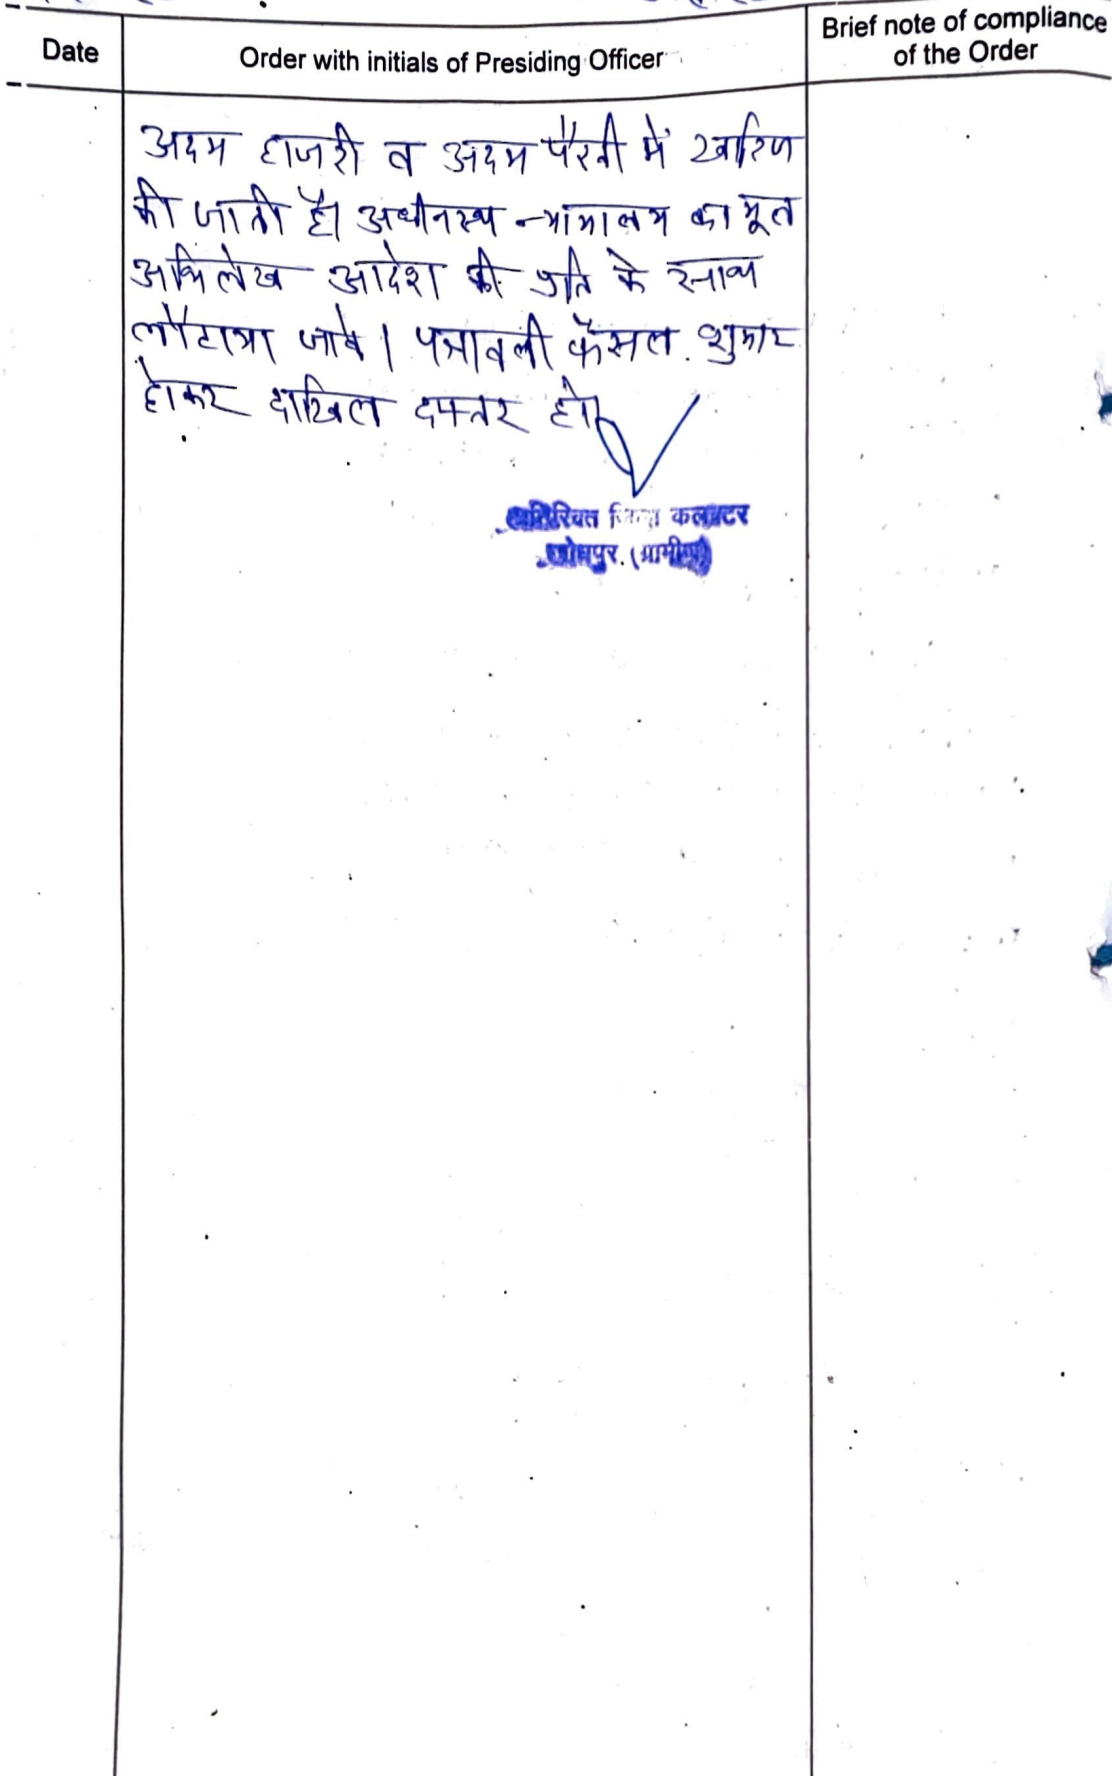 Date
Order with initials of Presiding Officer
Brief note of compliance
of the Order
अदम हाजरी व अदम पैरवी में खारिज
की जाती है। अधीनस्थ न्यायालय का मूल
अभिलेख आदेश की प्रति के साथ
लौटाया जावे। पत्रावली फैसल शुमार
होकर दाखिल दफ्तर हो।
अतिरिक्त जिला कलक्टर
जोधपुर (ग्रामीण)